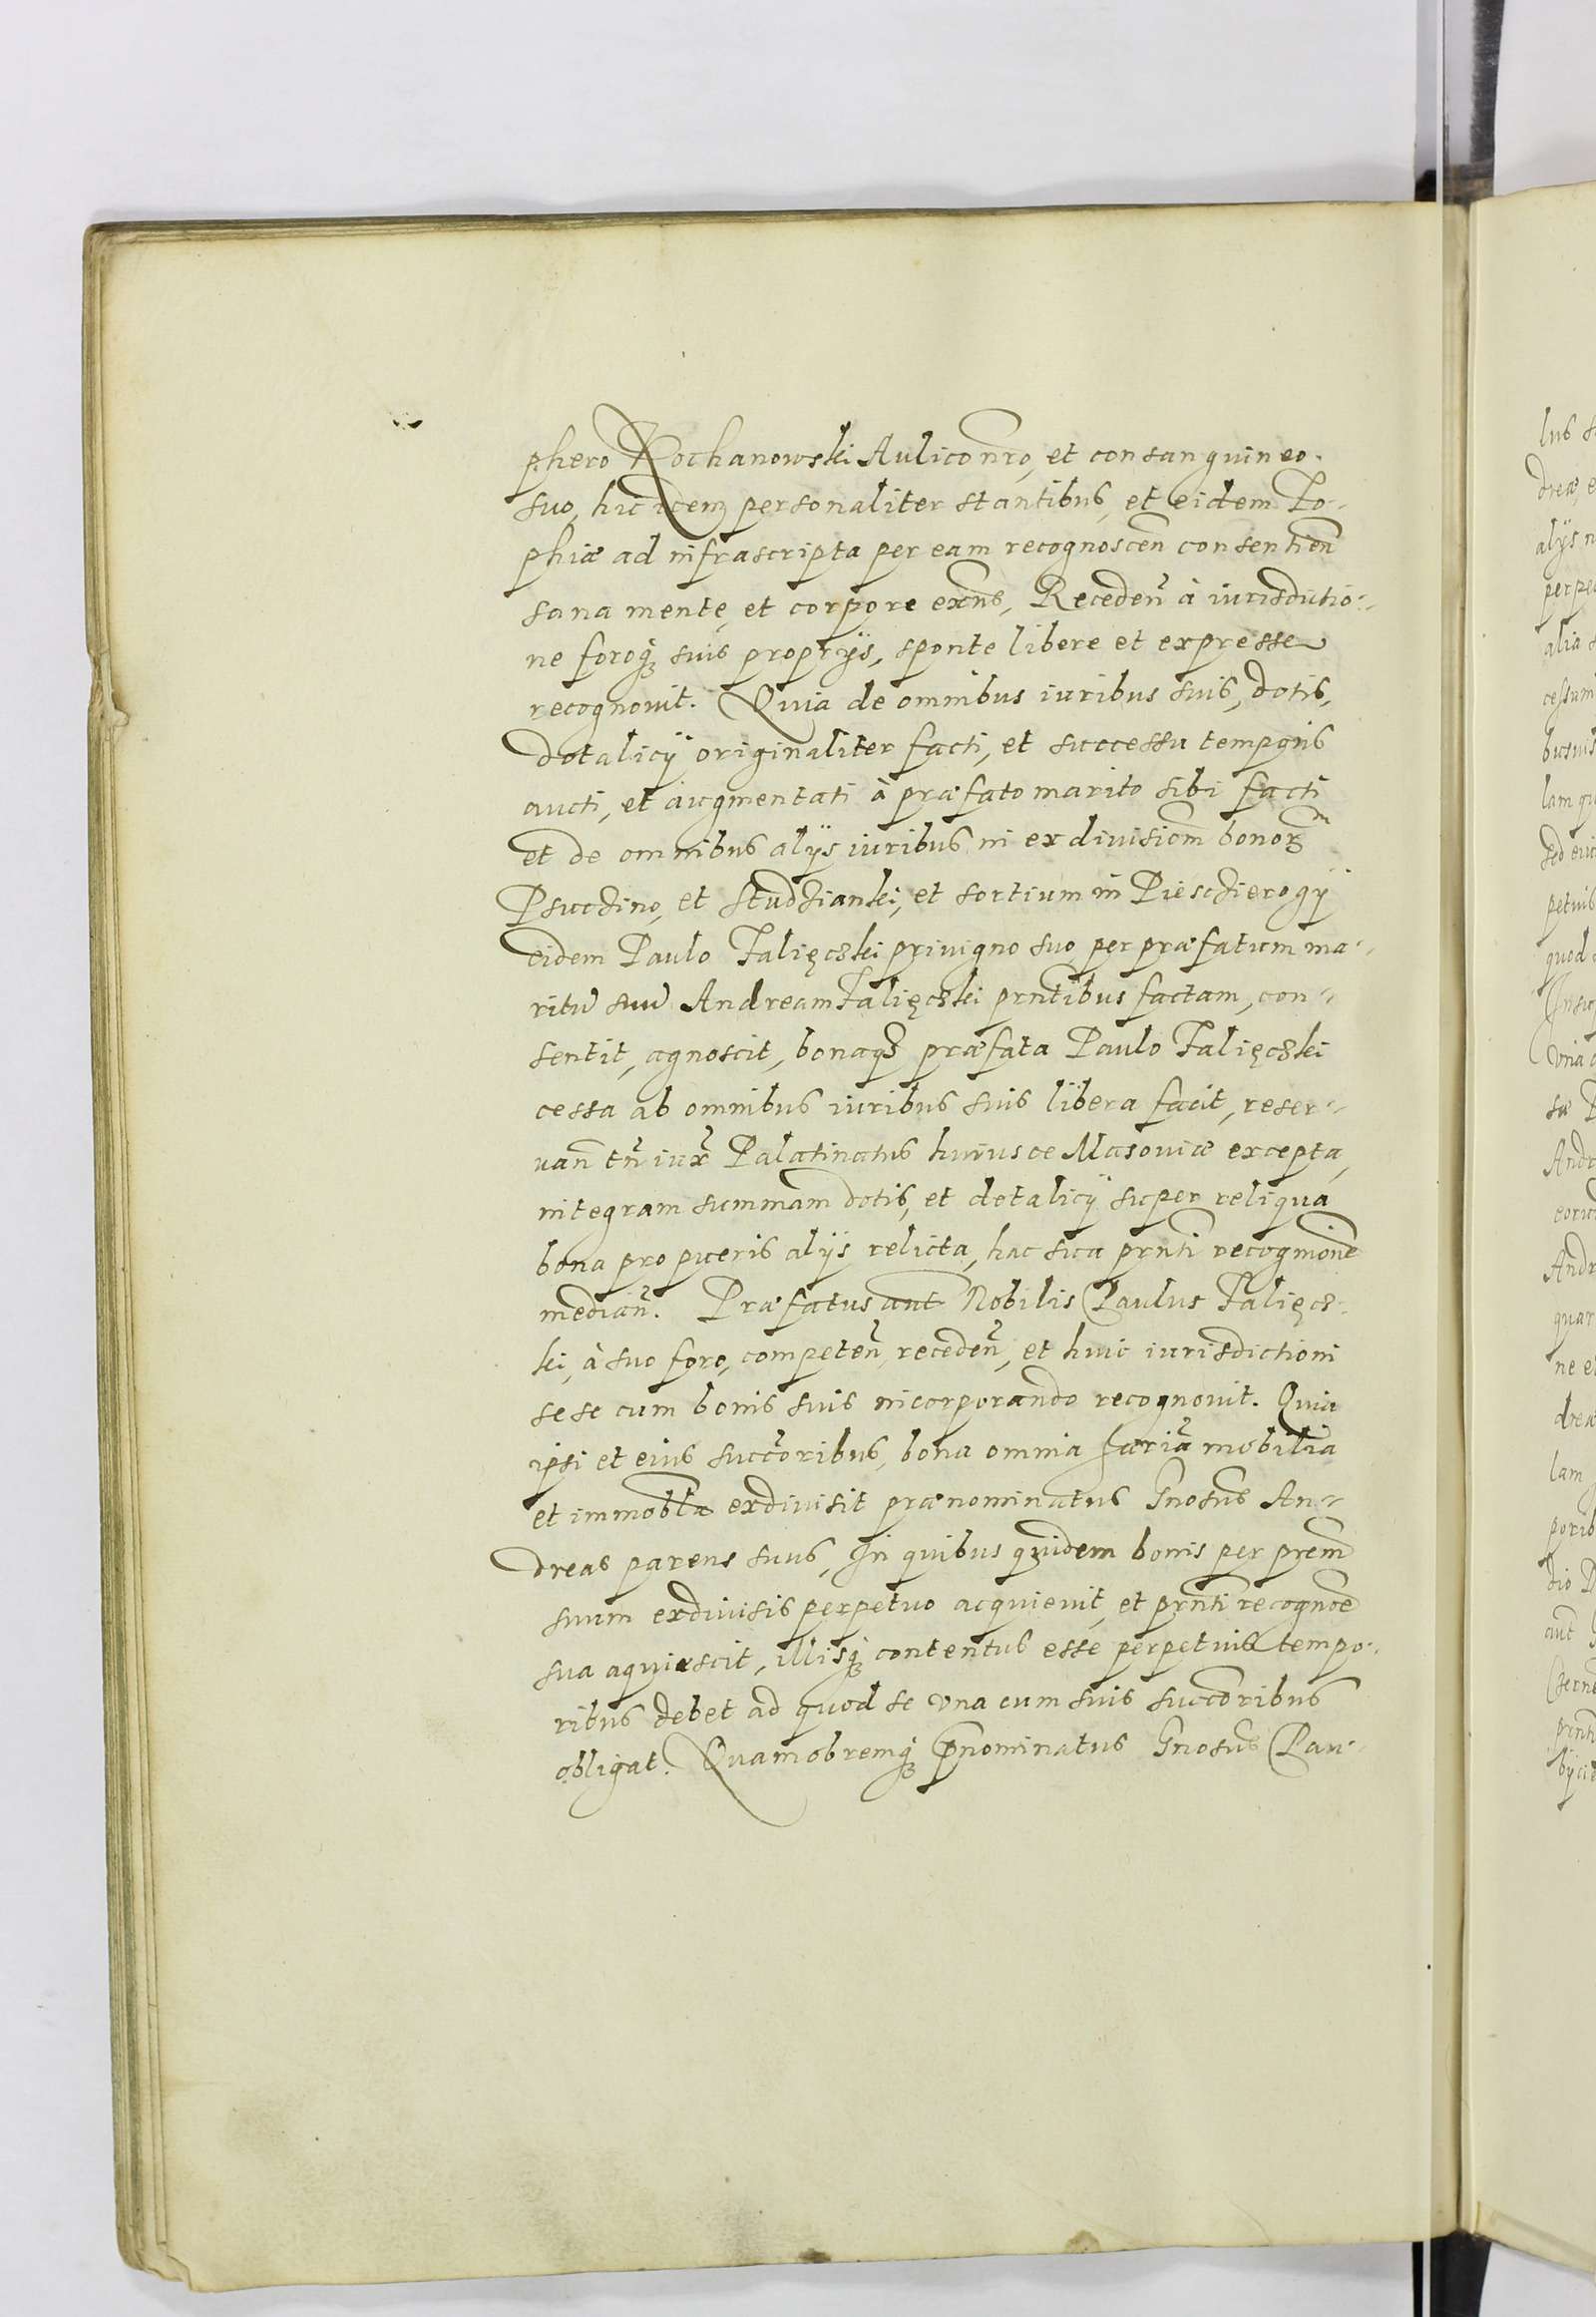 phero Kochanowski Aulico nr̃o, et consanguineo.
suo, hic idem personaliter stantibus, et eidem Zo-
phiæ ad infrascripta per eam recognoscen̄ consentien̄
sana mente, et corpore exn̄s, Receden̄ à iurisdictio-
ne foroq; suis proprijs, sponte libere et expresse
recognovit. Quia de omnibus iuribus suis, dotis,
dotalicij originaliter facti, et successu temporis
aucti, et augmentati à præfato marito sibi facti
et de omnibus alijs iuribus in exdivisiom̄ bonorm
Psucdino, et Studzianki, et sortium in Piesczierogÿ
eidem Paulo Falięczki privigno suo, per præfatum ma-
ritū suū Andream Falięczki prn̄tibus factam, con-
sentit, agnoscit, bonaq3 præfata Paulo Falięczki
cessa ab omnibus iuribus suis libera facit, reser-
uan̄ tn̄ iux̄ Palatinatus huiusce Masoviæ excepta,
integram summam dotis, et dotalicij super reliqua
bona pro pueris alijs relicta, hac sua prn̄ti recogn̄ione
median̄. Præfatus aut Nobilis Paulus Falięcz-
ki, à suo foro, competen̄ receden̄, et huic iurisdictioni
sese cum bonis suis incorporando recognouit. Quia
ipsi et eius succ̄oribus, bona omnia hærīa mobilia
et immob̄la exdivisit prænominatus Gn̄osus An-
dreas parens suus, In quibus quidem bonis per prēm
suum exdivisis perpetuo acquieuit, et prn̄ti recogn̄oe
sua aquiescit, illisq; contentus esse perpetuis tempo-
ribus debet ad quod se vna cum suis succ̄oribus
obligat. Quamobremq; p̄nominatus Gn̄osus Pau-